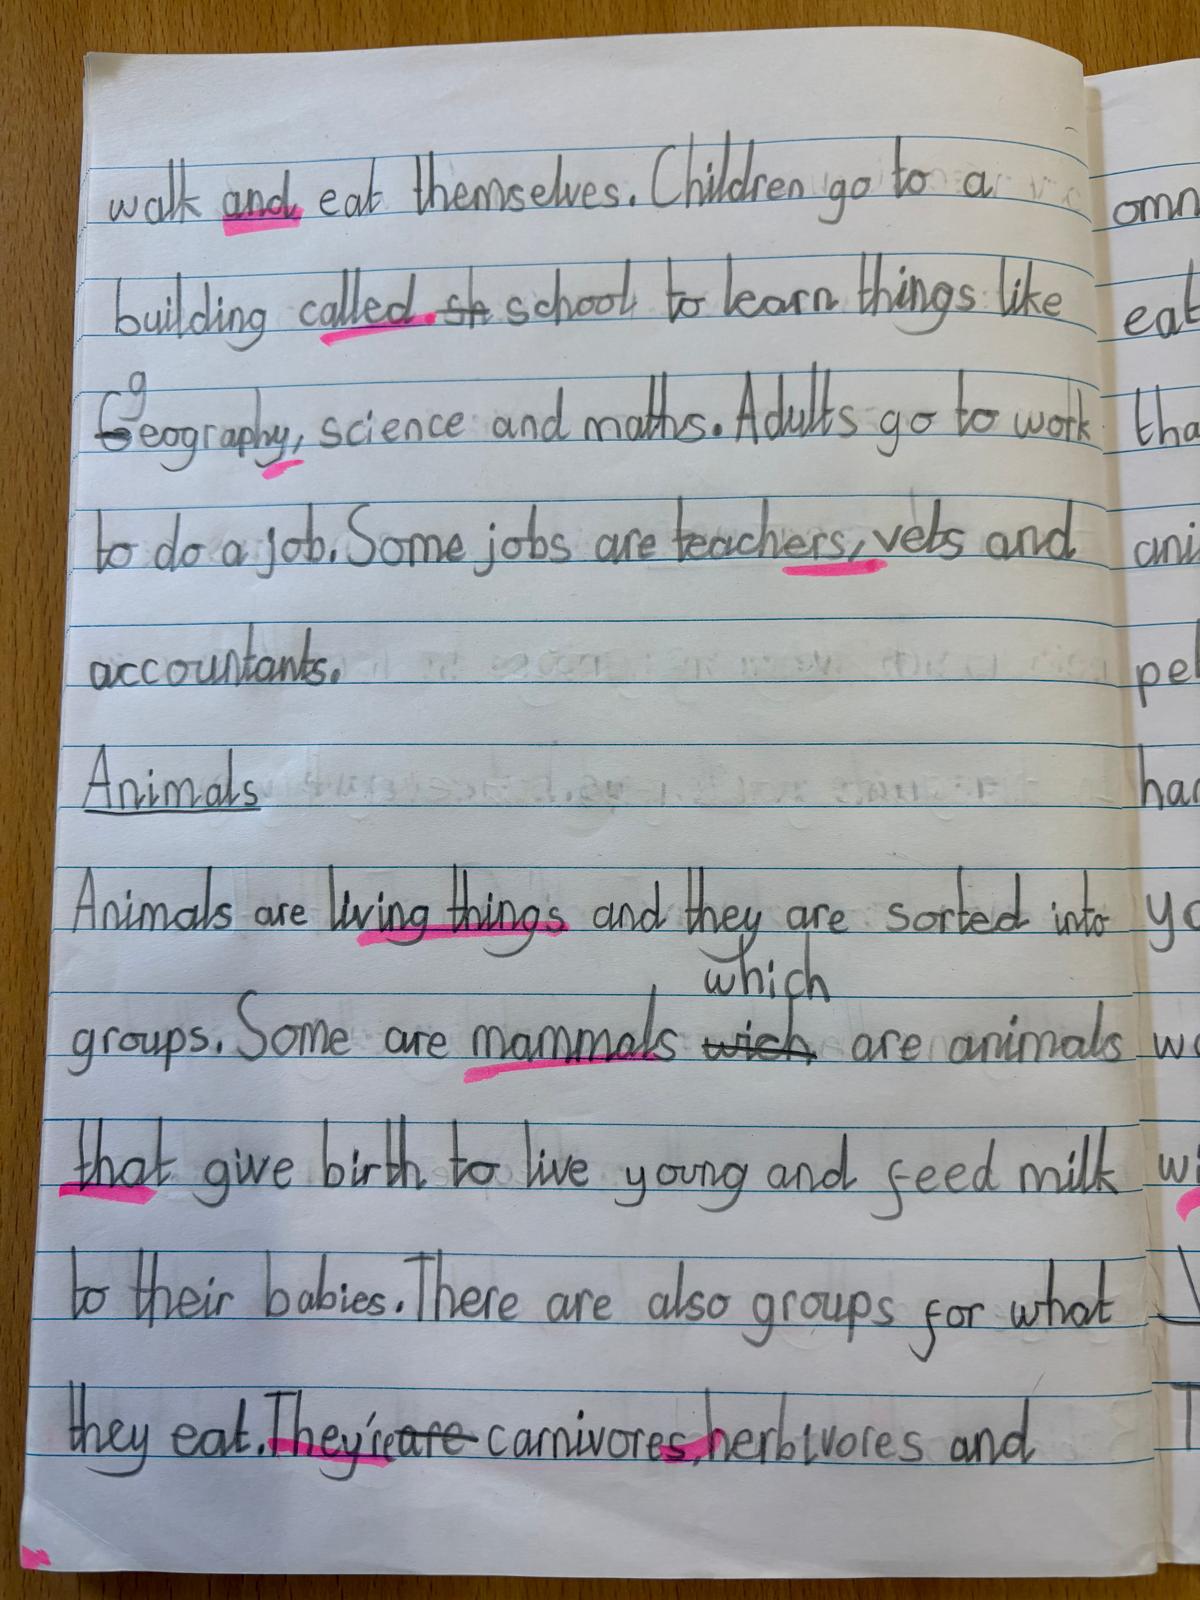 walk and eat themselves. Children go to a
building called sh school to learn things like
g
Geography, science and maths. Adults go to work
to do a job. Some jobs are teachers, vets and
accountants.
Animals
Animals are living things and they are sorted into
which
groups. Some are mammals wich are animals
that give birth to live young and feed milk
to their babies. There are also groups for what
they eat. They're are carnivores, herbivores and
omn
eat
tha
ani
pe
har
yo
wi